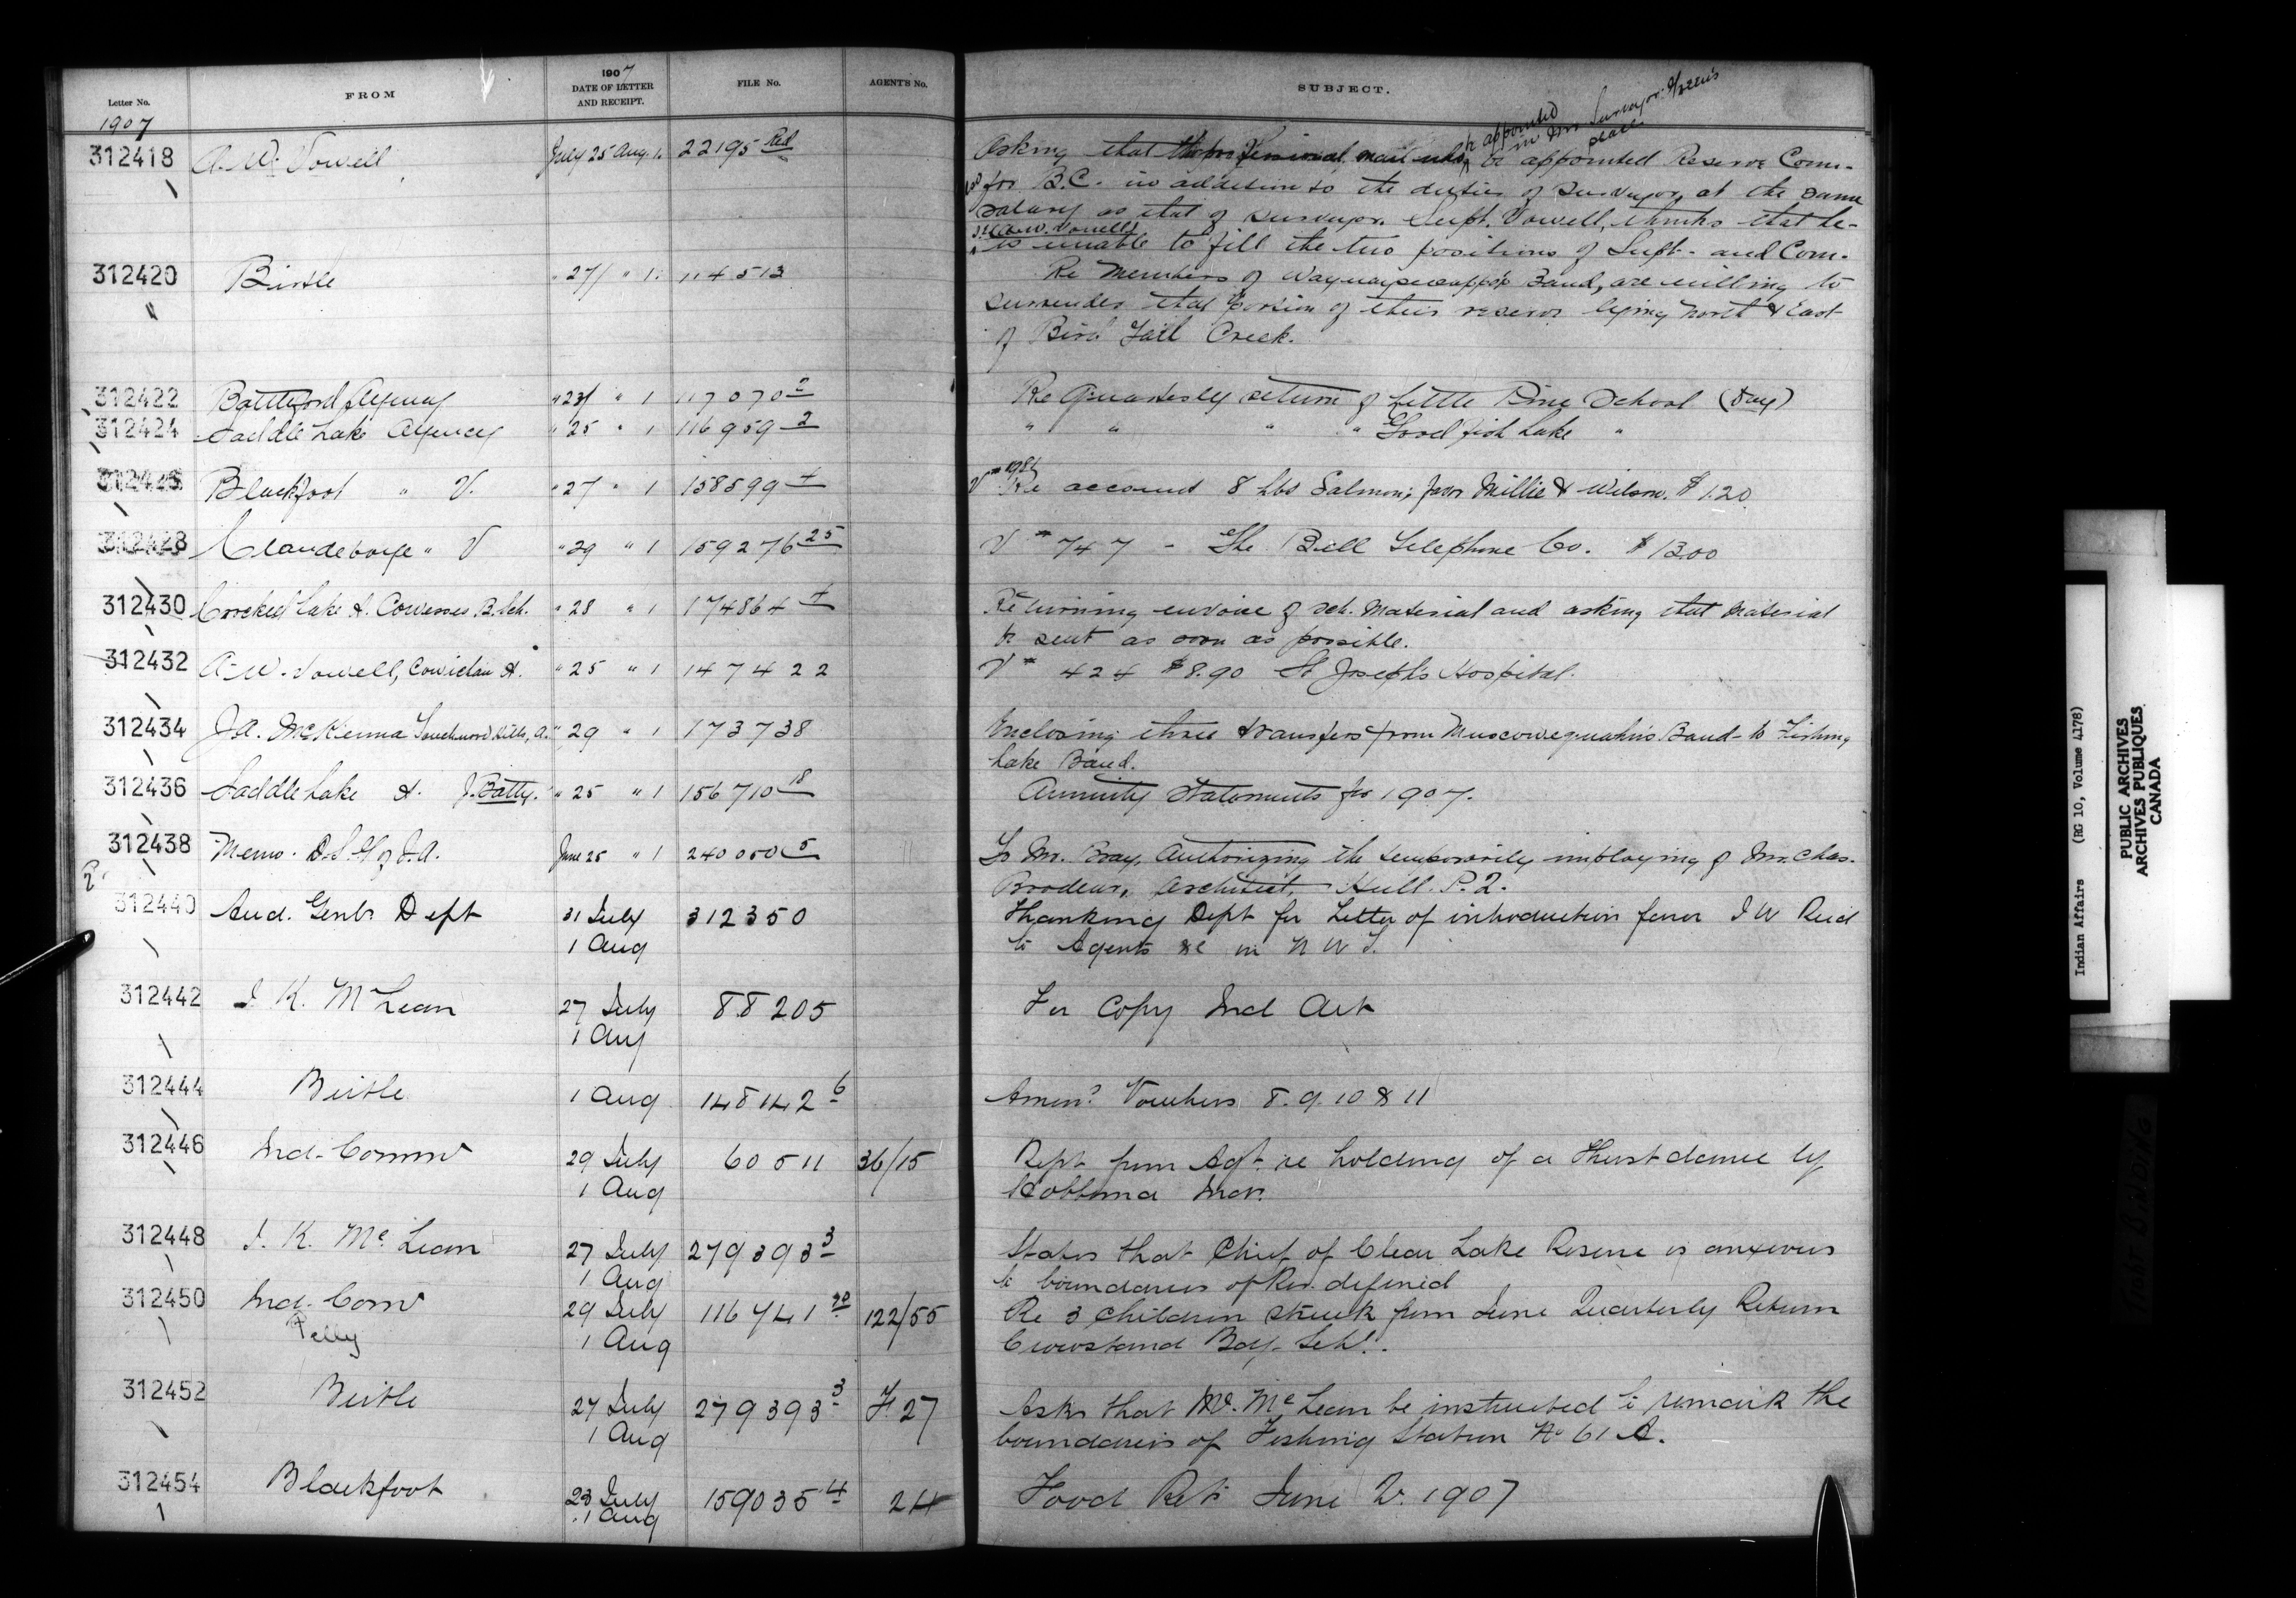 Letter No.
FROM
1907
DATE OF LETTER
AND RECEIPT.
FILE No.
AGENT'S No.
SUBJECT.
1907
be appointed
in Mr Surveyor Green's
place
312418 A. W. Vowell July 25 Aug. 1. 22195 Rd Asking that the professional man who be appointed Reserve Com-
for B.C. in addition to the duties of Surveyor, at the same
salary as that of surveyor. Supt. Vowell, thinks that he
A.W. Vowell
is unable to fill the two positions of Supt. and Com.
312420 Birtle " 27/ " 1. 114513 Re Members of Band, are willing to
surrender that portion of their reserve lying North & East
of Bird Tail Creek.
312422 Battleford Agency " 23/ " 1 117070 2 Re Quarterly return of Little Pine School (Day)
312424 Saddle Lake Agency " 25 " 1 116959 2 " " " " Good fish Lake "
Blackfoot " V. " 27 " 1 158599 4 V Re account 8 lbs Salmon; favor Millie & Wilson. $1.20
312428 Clandeboye " V " 29 " 1 159276 25 V # 747 - The Bell Telephone Co. $13.00
312430 Crooked Lake A. Cowesses B. Sch. " 28 " 1 174864 4 Returning invoice of sch. material and asking that material
be sent as soon as possible.
312432 A. W. Vowell, Cowichan A. " 25 " 1 147422 V # 424 $8.90 St Joseph's Hospital.
312434 J. A. McKenna Touchwood Hills, A. " 29 " 1 173738 Enclosing three transfers from Muscowequahn's Band to Fishing
Lake Band.
312436 Saddle Lake A. J. Batty. " 25 " 1 156710 18 Annuity Statements for 1907.
312438 Memo. D.S.G. of I.A. June 25 " 1 240050 5 To Mr. Bray, Authorizing the temporarily imploying of Mr. Chas.
Brodeur, Architect, Hull. P.Q.
312440 Aud. Genls Dept 31 July 312350 Thanking Dept for Letter of introduction favor J W Reid
1 Aug to Agents &c in N W T.
312442 J. K. McLean 27 July 88205 For Copy Ind Act
1 Aug
312444 Birtle 1 Aug 148142 6 Vouchers 8. 9. 10 & 11
312446 Ind. Commr 29 July 60511 36/15 Rept from Agt re holding of a Thirst dance by
1 Aug Hobbema Inds.
312448 J. K. McLean 27 July 279393 3 States that Chief of Clear Lake Reserve is anxious
1 Aug to boundaries of Res. defined
312450 Ind. Comr 29 July 116741 20 122/55 Re 3 children struck from June Quarterly Return
Pelly 1 Aug Crowstand Bdg. Schl.
312452 Birtle 27 July 279393 3 F 27 Asks that Mr. McLean be instructed to remark the
1 Aug boundaries of Fishing Station No 61 A.
312454 Blackfoot 23 July 159035 4 24 Food Rets June Q. 1907
1 Aug
Indian Affairs (RG 10, Volume 4178)
PUBLIC ARCHIVES
ARCHIVES PUBLIQUES
CANADA